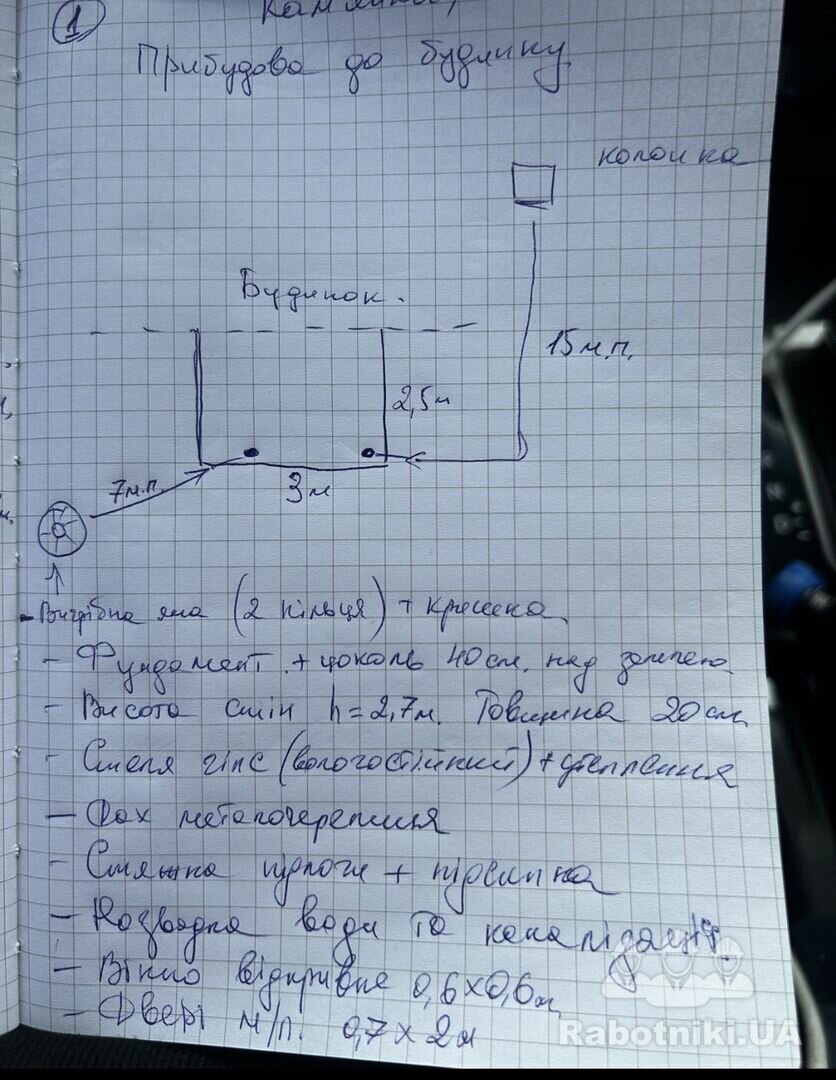 1
Прибудова до будинку
колонка
Будинок.
15м.п.
2,5м
7м.п.
3м
- Вигрібна яма (2 кільця) + кришка
- Фундамент + цоколь 40см. над землею
- Висота стін h=2,7м. Товщина 20см
- Стеля гіпс (вологостійкий) + утеплення
- Дах металочерепиця
- Стяжка підлоги + підсипка
- Розводка води та каналізації.
- Вікно відкривне 0,6х0,6м
- Двері м/п. 0,7х2м
Rabotniki.UA